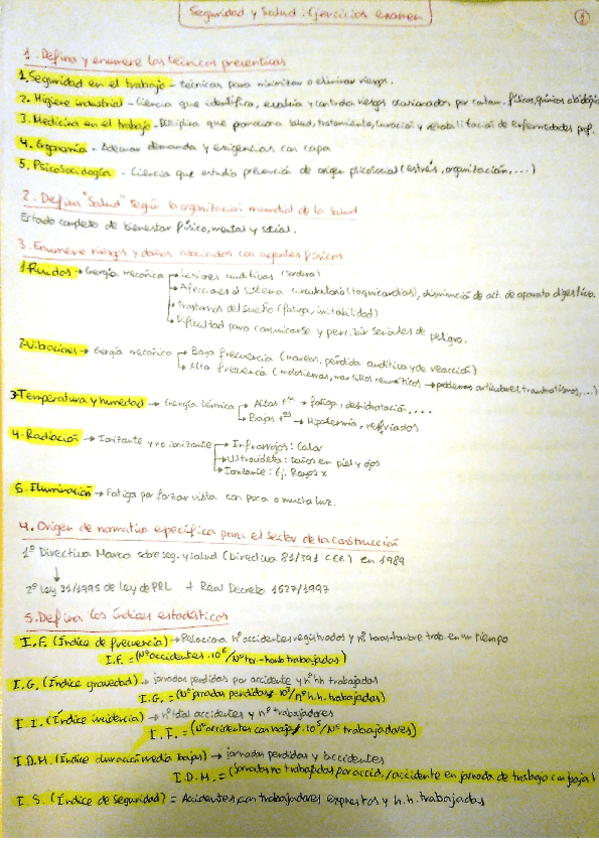 Seguridad y Salud: Ejercicios examen
1
1. Defina y enumere las técnicas preventivas
1. Seguridad en el trabajo - técnicas para minimizar o eliminar riesgos.
2. Higiene industrial - Ciencia que identifica, evalúa y controla riesgos ocasionados por contam. físicos, químicos o biológicos
3. Medicina en el trabajo - Disciplina que promociona salud, tratamiento, curación y rehabilitación de enfermedades prof.
4. Ergonomía - Adecuar demanda y exigencias con capa
5. Psicosociología - Ciencia que estudia prevención de origen psicosocial (estrés, organización, ...)
2. Defina "Salud" según la organización mundial de la salud
Estado completo de bienestar físico, mental y social.
3. Enumere riesgos y daños asociados con agentes físicos
1. Ruidos → Energía mecánica → Lesiones auditivas (sordera)
→ Afecciones al sistema circulatorio (taquicardias), disminución de act. de aparato digestivo.
→ Trastornos del sueño (fatiga, irritabilidad)
→ Dificultad para comunicarse y percibir señales de peligro.
2. Vibraciones → Energía mecánica → Baja frecuencia (mareos, pérdida auditiva y de reacción)
→ Alta frecuencia (motosierras, martillos neumáticos → problemas articulares, traumatismos, ...)
3. Temperatura y humedad → Energía térmica → Altas tas → fatiga, deshidratación, ...
→ Bajas tas → Hipotermia, resfriados
4. Radiación → Ionizante y no ionizante → Infrarrojos: Calor
→ Ultravioleta: Daños en piel y ojos
→ Ionizante: Ej. Rayos X
5. Iluminación → Fatiga por forzar vista con poca o mucha luz.
4. Origen de normativa específica para el sector de la construcción
1º Directiva Marco sobre seg. y salud (Directiva 81/391 CEE) en 1989
↓
2º Ley 31/1995 de Ley de PRL + Real Decreto 1627/1997
5. Defina los índices estadísticos
I.F. (Índice de frecuencia) → Relaciona nº accidentes registrados y nº horas-hombre trab. en un tiempo
I.F. = (Nº accidentes · 10⁶ / Nº hor-homb trabajadas)
I.G. (Índice gravedad) → jornadas perdidas por accidente y nº hh trabajadas
I.G. = (Nº jornadas perdidas · 10³ / nº h.h. trabajadas)
I.I. (Índice incidencia) → nº total accidentes y nº trabajadores
I.I. = (Nº accidentes con baja · 10⁵ / Nº trabajadores)
I.D.M. (Índice duración media bajas) → jornadas perdidas y accidentes
I.D.M. = (jornadas no trabajadas por accid. / accidente en jornada de trabajo con baja)
I.S. (Índice de Seguridad) = Accidentes con trabajadores expuestos y h.h. trabajadas